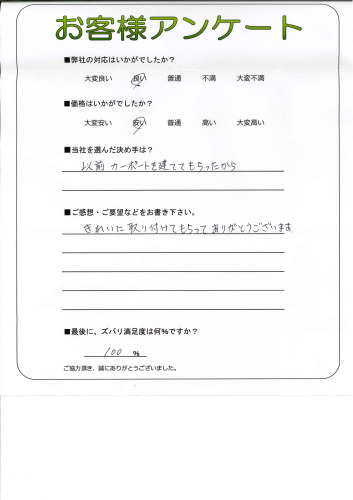 お客様アンケート
■弊社の対応はいかがでしたか？
大変良い 良い 普通 不満 大変不満
■価格はいかがでしたか？
大変安い 安い 普通 高い 大変高い
■当社を選んだ決め手は？
以前 カーポートを建ててもらったから
■ご感想・ご要望などをお書き下さい。
きれいに取り付けてもらって ありがとうございます
■最後に、ズバリ満足度は何％ですか？
100 ％
ご協力頂き、誠にありがとうございました。